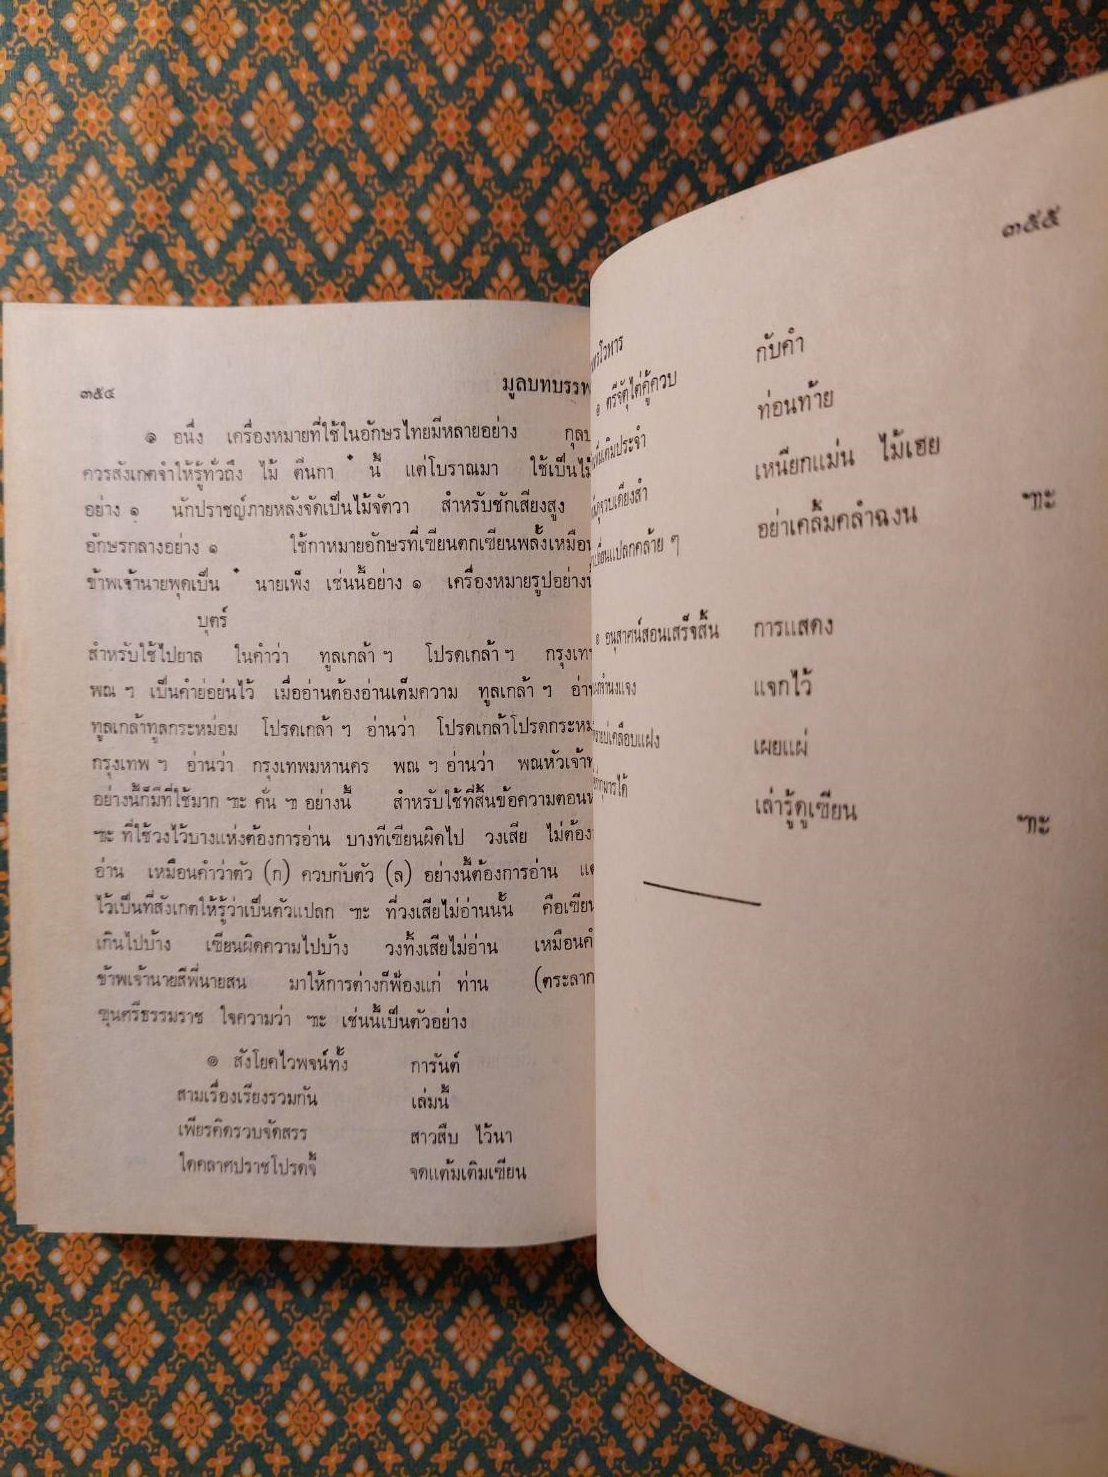 ๓๕๔
มูลบทบรรพ
๑ อนึ่ง เครื่องหมายที่ใช้ในอักษรไทยมีหลายอย่าง กุลบ
ควรสังเกตจำให้รู้ทั่วถึง ไม้ ตีนกา ๋ นี้ แต่โบราณมา ใช้เป็นไม้
อย่าง ๑ นักปราชญ์ภายหลังจัดเป็นไม้จัตวา สำหรับชักเสียงสูง
อักษรกลางอย่าง ๑ ใช้กาหมายอักษรที่เขียนตกเขียนพลั้งเหมือน
ข้าพเจ้านายพุดเป็น ๋ นายเพ็ง เช่นนี้อย่าง ๑ เครื่องหมายรูปอย่างนี้
บุตร์
สำหรับใช้ไปยาล ในคำว่า ทูลเกล้า ฯ โปรดเกล้า ฯ กรุงเทพ
พณ ฯ เป็นคำย่อย่นไว้ เมื่ออ่านต้องอ่านเต็มความ ทูลเกล้า ฯ อ่าน
ทูลเกล้าทูลกระหม่อม โปรดเกล้า ฯ อ่านว่า โปรดเกล้าโปรดกระหม
กรุงเทพ ฯ อ่านว่า กรุงเทพมหานคร พณ ฯ อ่านว่า พณหัวเจ้าท
อย่างนี้ก็มีที่ใช้มาก ฯะ คั่น ฯ อย่างนี้ สำหรับใช้ที่สิ้นข้อความตอนห
ฯะ ที่ใช้วงไว้บางแห่งต้องการอ่าน บางทีเขียนผิดไป วงเสีย ไม่ต้อง
อ่าน เหมือนคำว่าตัว (ก) ควบกับตัว (ล) อย่างนี้ต้องการอ่าน แต
ไว้เป็นที่สังเกตให้รู้ว่าเป็นตัวแปลก ฯะ ที่วงเสียไม่อ่านนั้น คือเขียน
เกินไปบ้าง เขียนผิดความไปบ้าง วงทิ้งเสียไม่อ่าน เหมือนคำ
ข้าพเจ้านายสีพี่นายสน มาให้การต่างก็ฟ้องแก่ ท่าน (ตระลาก
ขุนศรีธรรมราช ใจความว่า ฯะ เช่นนี้เป็นตัวอย่าง
๑ สังโยคไวพจน์ทั้ง การันต์
สามเรื่องเรียงรวมกัน เล่มนี้
เพียรคิดรวบจัดสรร สาวสืบ ไว้นา
ใดคลาศปราชโปรดจี้ จดแต้มเติมเขียน
๓๕๕
๑ ตรีจัตุไต่คู้ควบ กับคำ
เติมประจำ ท่อนท้าย
ควบเคียงสำ เหนียกแม่น ไม้เฮย
แปลกคล้าย ๆ อย่าเคลิ้มคลำฉงน ฯะ
๑ อนุสาศน์สอนเสร็จสิ้น การแสดง
แจง แจกไว้
เคลือบแฝง เผยแผ่
ได้ เล่ารู้ดูเขียน ฯะ